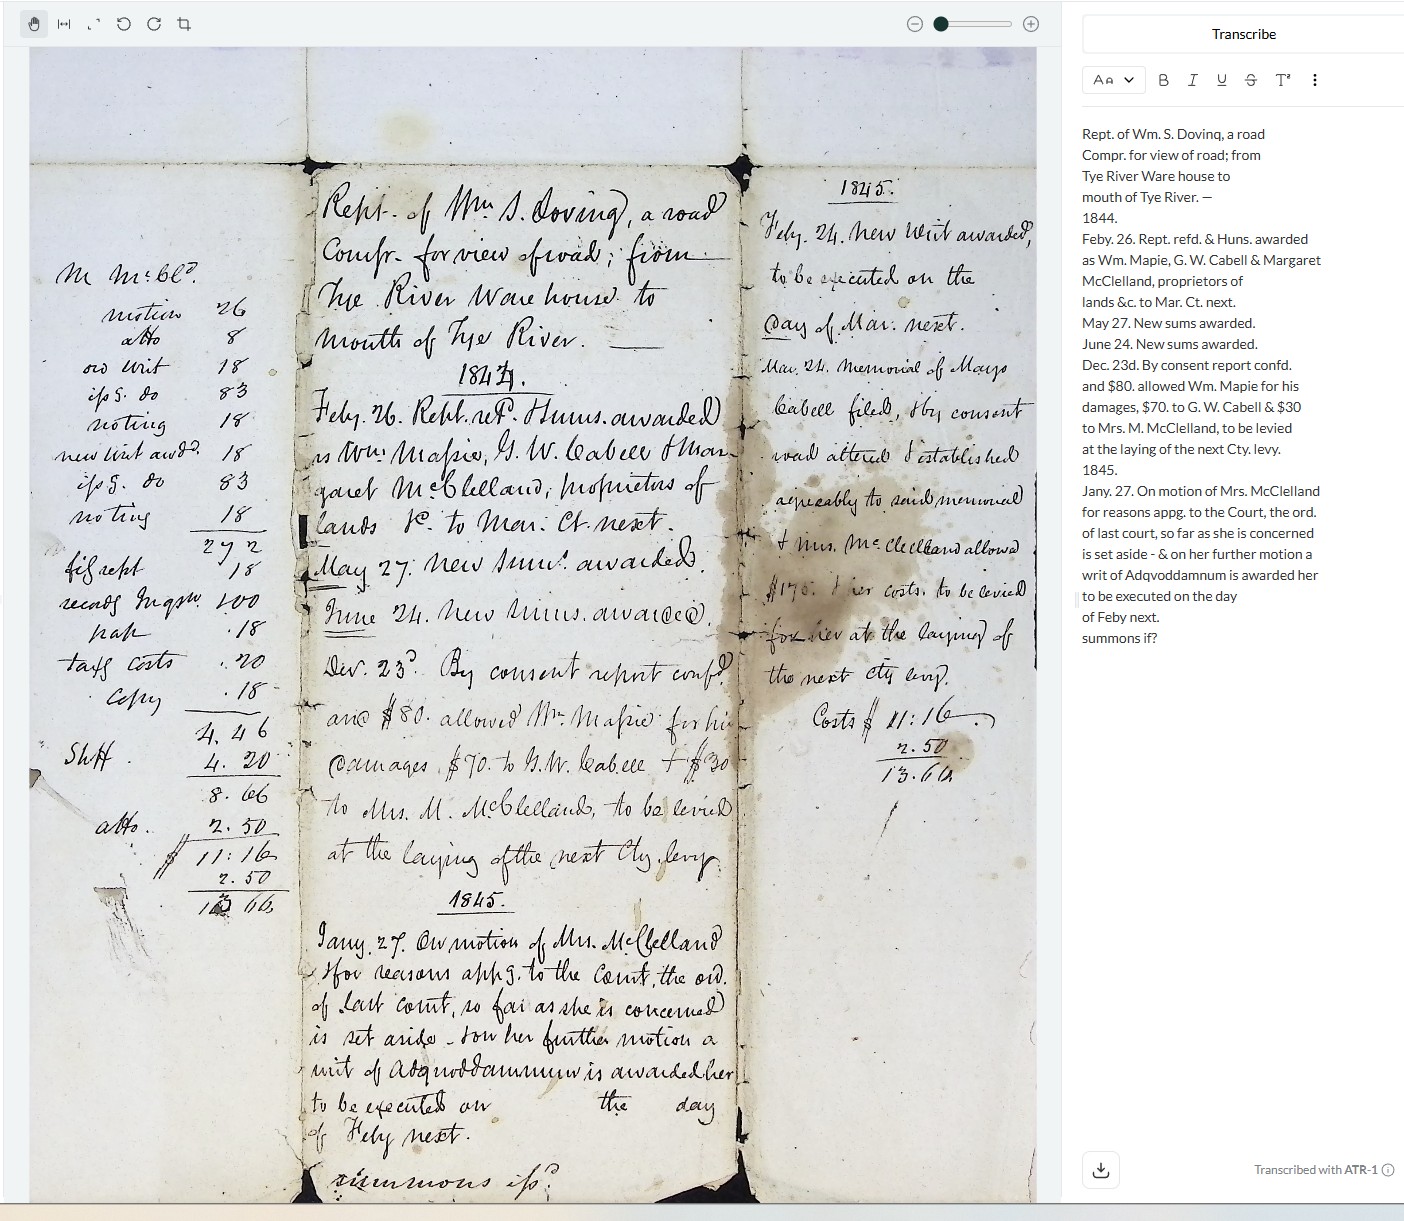 Transcribe
Aa B I U S T
M McCld.
motion 26
atto 8
ord writ 18
issg. do 83
noting 18
new writ awdd. 18
issg. do 83
noting 18
2 7 2
filg rept 18
recordg Inqsn. 100
18
taxg costs .20
copy .18
4.46
Shff. 4.20
8.66
atto. 2.50
$ 11:16
2.50
13 66
Rept. of Wm. S. Loving, a road
Comr. for view of road; from
Tye River Ware house to
mouth of Tye River. —
1844.
Feby. 26. Rept. retd. & sums. awarded
vs Wm. Massie, G. W. Cabell & Mar-
garet McClelland, proprietors of
lands &c. to Mar. Ct. next.
May 27. New sums. awarded.
June 24. New sums. awarded.
Dec. 23d. By consent report confd.
and $80. allowed Wm. Massie for his
damages, $70. to G. W. Cabell & $30
to Mrs. M. McClelland, to be levied
at the laying of the next Cty. levy.
1845.
Jany. 27. On motion of Mrs. McClelland
& for reasons appg. to the Court, the ord.
of last court, so far as she is concerned
is set aside - & on her further motion a
writ of Adquoddamnum is awarded her
to be executed on the day
of Feby next.
summons issd.
1845.
Feby. 24. New writ awarded,
to be executed on the
day of Mar. next.
Mar. 24. Memorial of Mayo
Cabell filed, & by consent
road altered & established
agreeably to said memorial
& Mrs. McClelland allowed
$170. & her costs. to be levied
for her at the laying of
the next cty levy.
Costs $ 11:16
2.50
13.66
Rept. of Wm. S. Dovinq, a road
Compr. for view of road; from
Tye River Ware house to
mouth of Tye River. —
1844.
Feby. 26. Rept. refd. & Huns. awarded
as Wm. Mapie, G. W. Cabell & Margaret
McClelland, proprietors of
lands &c. to Mar. Ct. next.
May 27. New sums awarded.
June 24. New sums awarded.
Dec. 23d. By consent report confd.
and $80. allowed Wm. Mapie for his
damages, $70. to G. W. Cabell & $30
to Mrs. M. McClelland, to be levied
at the laying of the next Cty. levy.
1845.
Jany. 27. On motion of Mrs. McClelland
for reasons appg. to the Court, the ord.
of last court, so far as she is concerned
is set aside - & on her further motion a
writ of Adqvoddamnum is awarded her
to be executed on the day
of Feby next.
summons if?
Transcribed with ATR-1